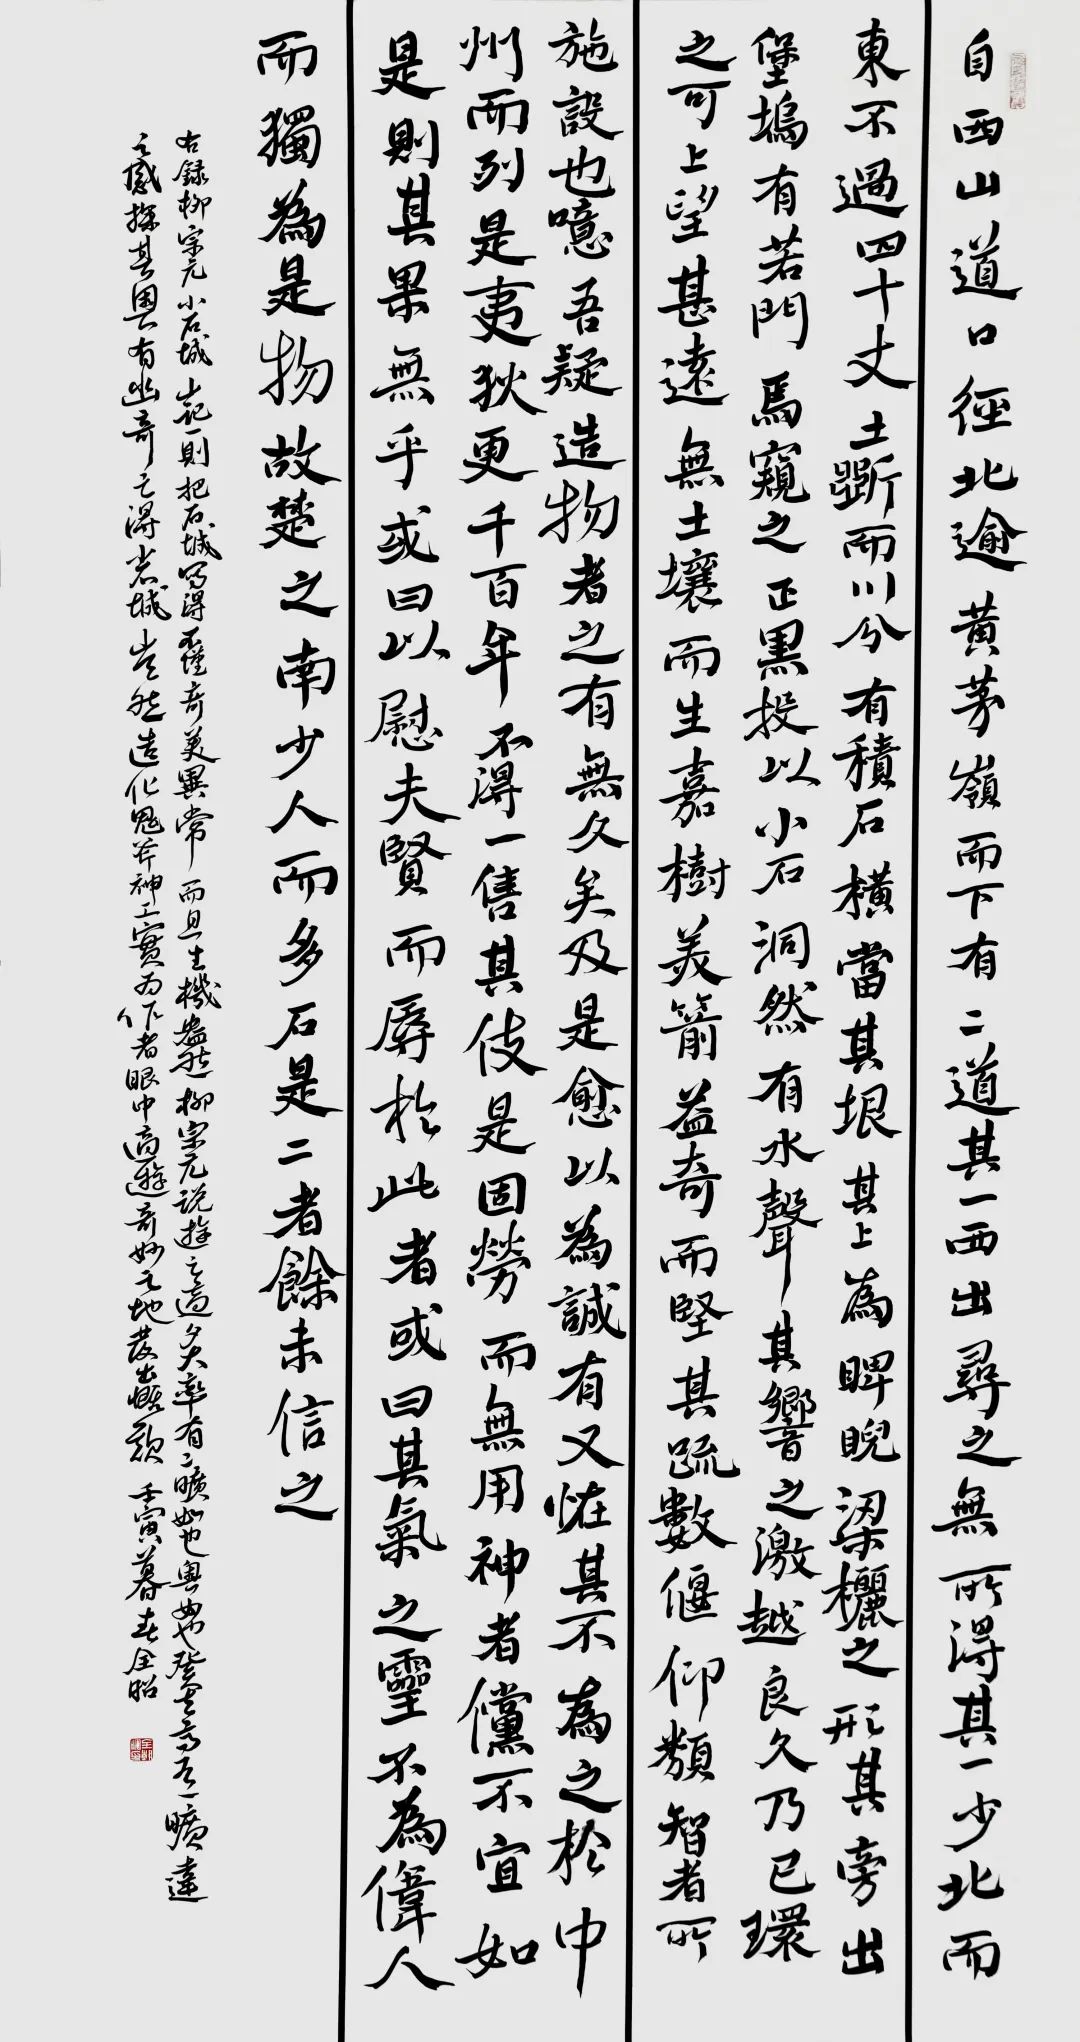 自西山道口徑北逾黃茅嶺而下有二道其一西出尋之無所得其一少北而
東不過四十丈土斷而川分有積石橫當其垠其上為睥睨梁欐之形其旁出
堡塢有若門焉窺之正黑投以小石洞然有水聲其響之激越良久乃已環
之可上望甚遠無土壤而生嘉樹美箭益奇而堅其疏數偃仰類智者所
施設也噫吾疑造物者之有無久矣及是愈以為誠有又怪其不為之於中
州而列是夷狄更千百年不得一售其伎是固勞而無用神者儻不宜如
是則其果無乎或曰以慰夫賢而辱於此者或曰其氣之靈不為偉人
而獨為是物故楚之南少人而多石是二者餘未信之
右錄柳宗元小石城山記一則把石城寫得不僅奇美異常而且生機盎然柳宗元說遊之適大率有二曠如也奧如也登高有一曠達
之感探其奧有幽奇之得小石城豈然造化鬼斧神工實為作者眼中適遊奇妙之地發出慨歎 壬寅暮春全昭